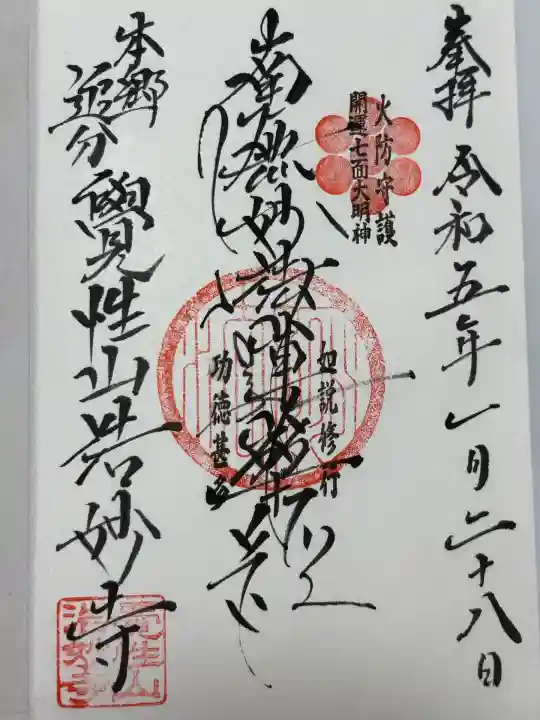 奉拝 令和五年一月二十八日
火防守護
開運七面大明神
南無妙法蓮華経
如説修行
功徳甚多
本郷
追分
覺性山法妙寺